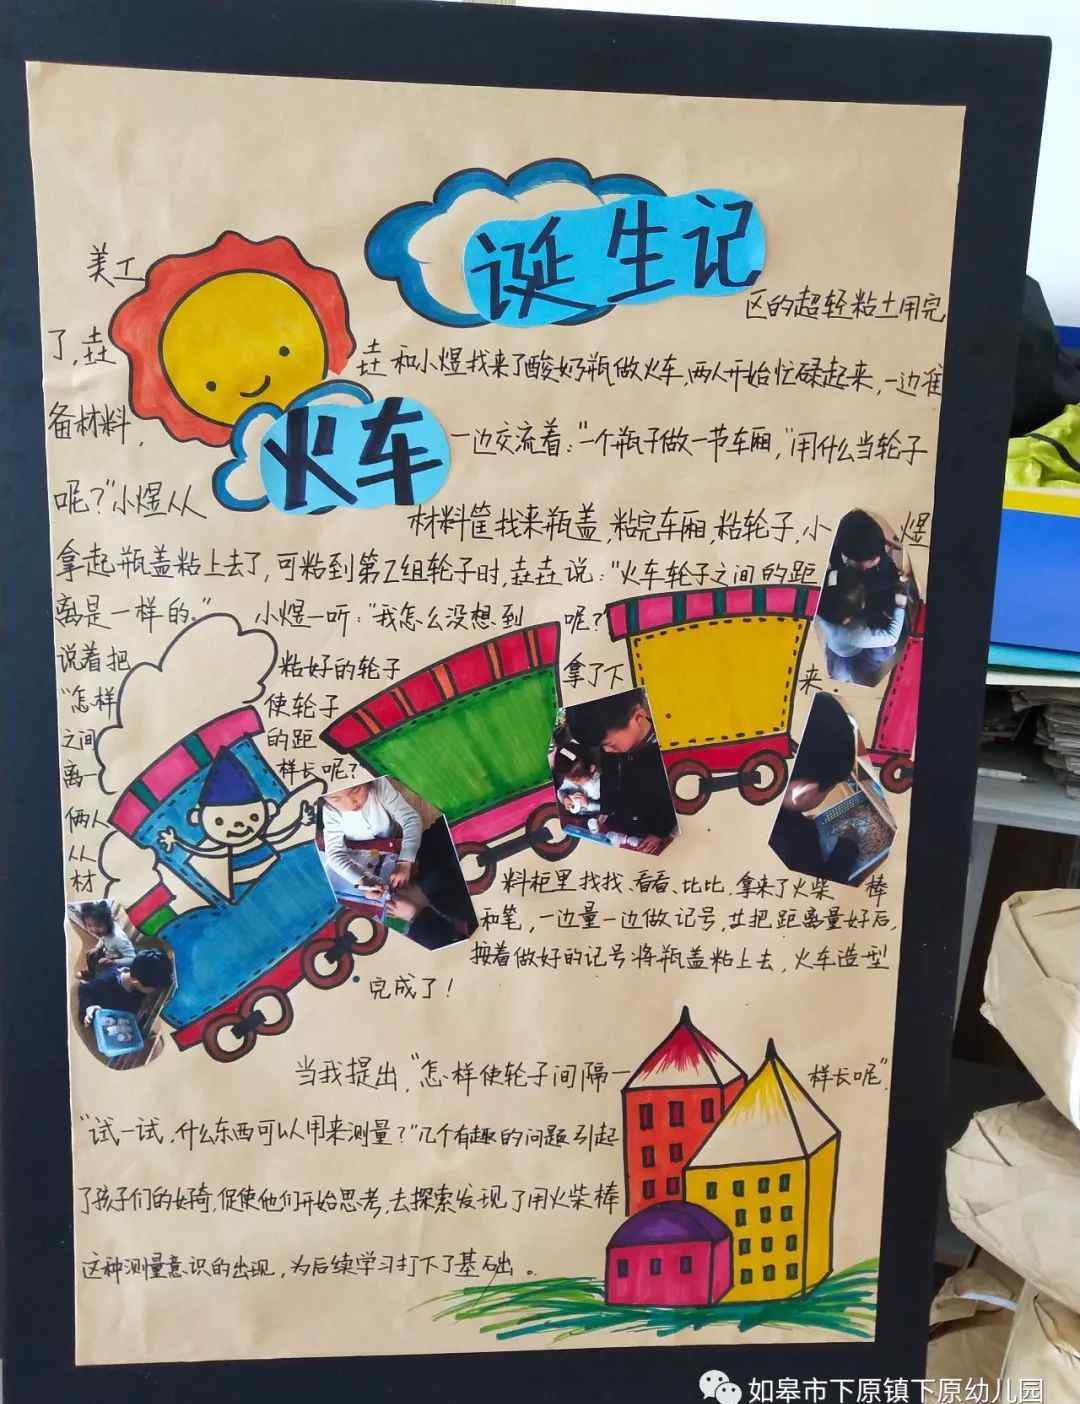 诞生记
火车
美工 区的超轻粘土用完
了,垚 垚和小煜找来了酸奶瓶做火车,两人开始忙碌起来,一边准
备材料, 一边交流着:"一个瓶子做一节车厢,"用什么当轮子
呢?"小煜从 材料筐找来瓶盖,粘完车厢,粘轮子,小 煜
拿起瓶盖粘上去了,可粘到第2组轮子时,垚垚说:"火车轮子之间的距
离是一样的。" 小煜一听:"我怎么没想到 呢?"
说着把 粘好的轮子 拿了下 来.
"怎样 使轮子
之间 的距
离一 样长呢?
俩人
从
材 料柜里找找、看看、比比,拿来了火柴 棒
和笔,一边量一边做记号,并把距离量好后,
按着做好的记号将瓶盖粘上去,火车造型
完成了!
当我提出,"怎样使轮子间隔一 样长呢"
"试一试,什么东西可以用来测量?"几个有趣的问题引起
了孩子们的好奇,促使他们开始思考,去探索发现了用火柴棒
这种测量意识的出现,为后续学习打下了基础。
如皋市下原镇下原幼儿园